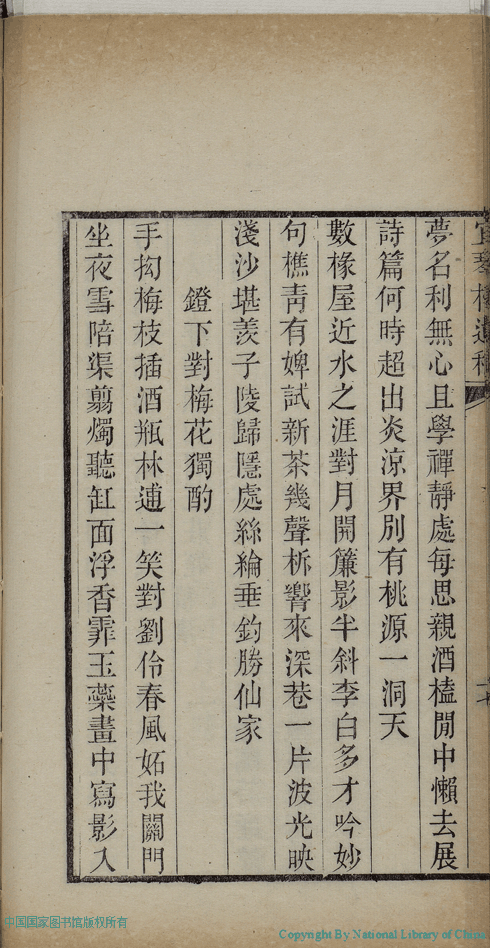 夢名利無心且學禪靜處每思親酒榼閒中懶去展
詩篇何時超出炎涼界別有桃源一洞天
數椽屋近水之涯對月開簾影半斜李白多才吟妙
句樵青有婢試新茶幾聲柝響來深巷一片波光映
淺沙堪羨子陵歸隱處絲綸垂釣勝仙家
鐙下對梅花獨酌
手挏梅枝插酒瓶林逋一笑對劉伶春風妬我關門
坐夜雪陪渠翦燭聽缸面浮香霏玉蘂畫中寫影入
中国国家图书馆版权所有
Copyright By National Library of China